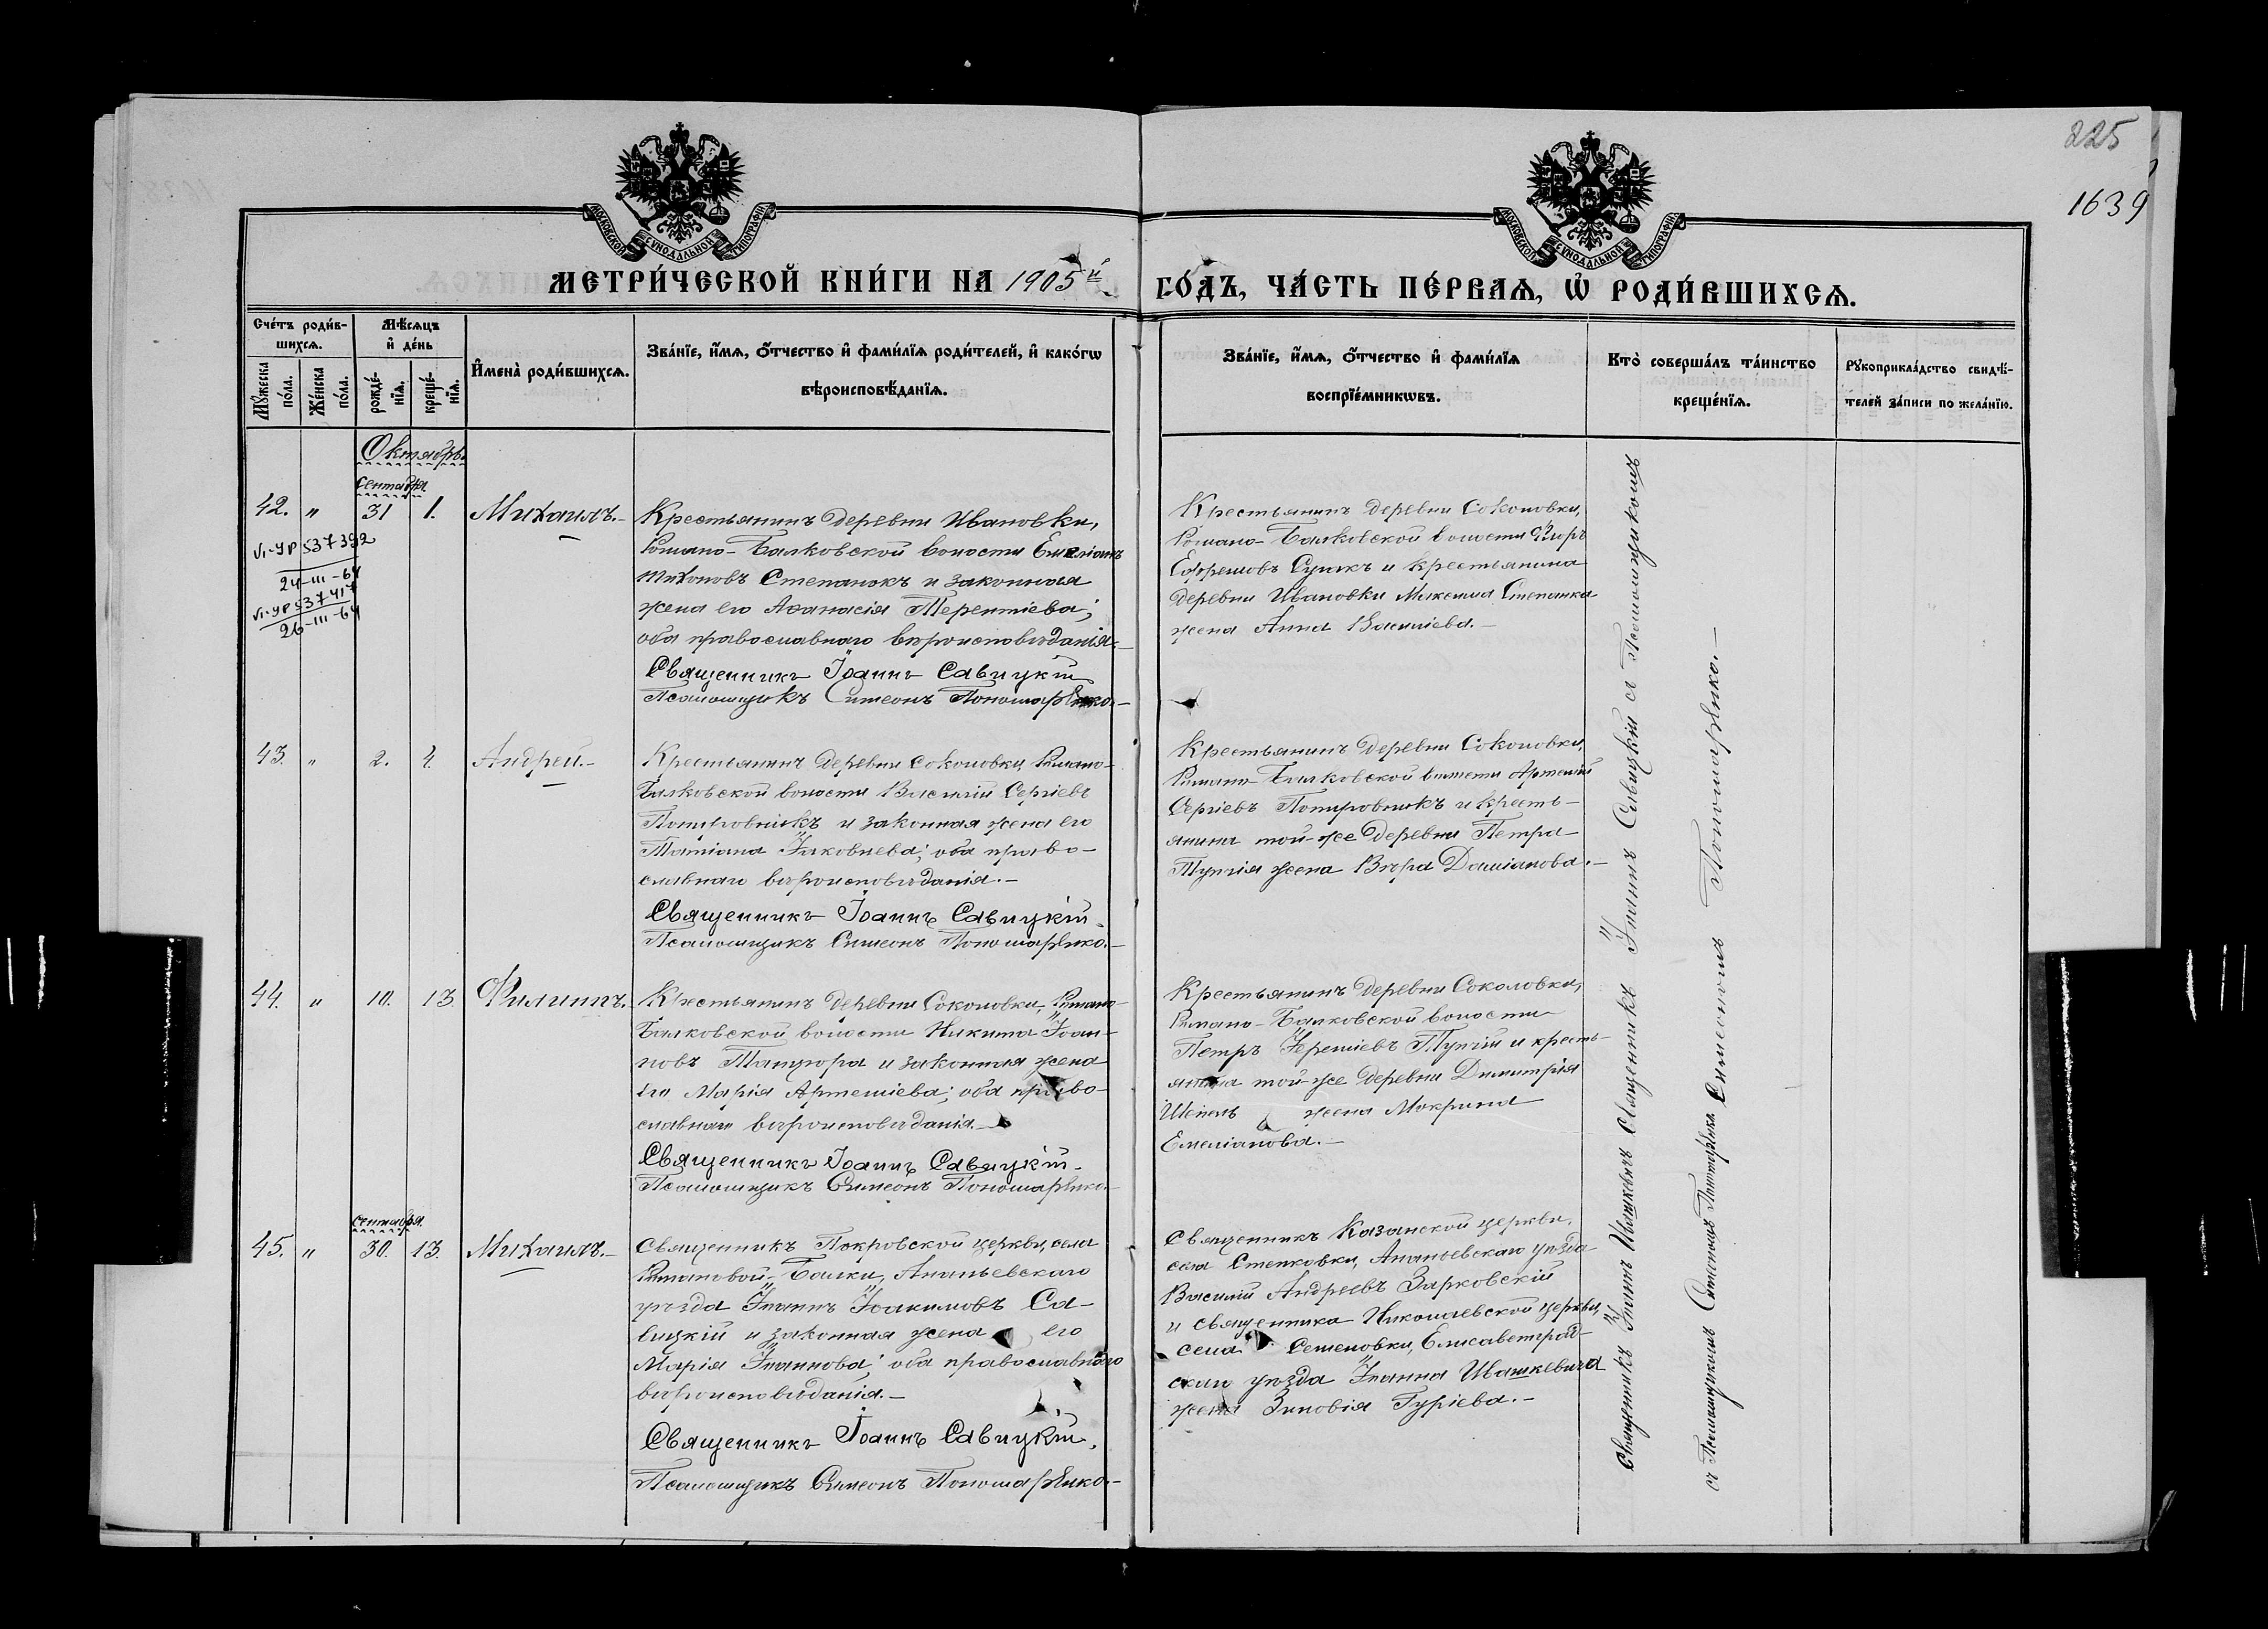 225
1639
МОСКОВСКОЙ СѴНОДАЛЬНОЙ ТИПОГРАФІИ
МОСКОВСКОЙ СѴНОДАЛЬНОЙ ТИПОГРАФІИ
МЕТРИ́ЧЕСКОЙ КНИ́ГИ НА 1905й
ГО́ДЪ, ЧА́СТЬ ПЕ́РВАѦ, Ѿ РОДИ́ВШИХСѦ.
Сче́тъ роди́в-
шихсѧ.
Мꙋ́жеска по́ла.
Же́нска по́ла.
Мѣ́сѧцъ
и҆ де́нь
рожде́-
нїѧ.
креще́-
нїѧ.
И҆мена̀ роди́вшихсѧ.
Зва́нїе, и҆́мѧ, ѻ҆́тчество и҆ фами́лїѧ роди́телей, и҆ како́гѡ
вѣроисповѣ́данїѧ.
Зва́нїе, и҆́мѧ, ѻ҆́тчество и҆ фами́лїѧ
воспрїе́мникѡвъ.
Кто̀ соверша́лъ та́инство
креще́нїѧ.
Рꙋкоприкла́дство свидѣ́-
телей за́писи по жела́нїю.
Октябрь.
Сентября
42. " 31 1. Михаилъ.-
VI-УР 537392
24-III-64
VI-УР 537417
26-III-64
Крестьянинъ деревни Ивановки,
Романо-Балковской волости Емеліанъ
Тихоновъ Степанокъ и законная
жена его Аѳанасія Терентіева;
оба православнаго вѣроисповѣданія.-
Священникъ Іоаннъ Савицкій
Псаломщикъ Симеонъ Пономаренко.-
Крестьянинъ деревни Соколовки,
Романо-Балковской волости
Ефремовъ Сукъ и крестьянина
деревни Ивановки Степанка
жена Анна Василіева.-
43. " 2. 4. Андрей.-
Крестьянинъ деревни Соколовки, Романо-
Балковской волости Василій Сергіевъ
и законная жена его
Татіана Іаковлева; оба право-
славнаго вѣроисповѣданія.-
Священникъ Іоаннъ Савицкій.
Псаломщикъ Симеонъ Пономаренко.-
Крестьянинъ деревни Соколовки,
Романо-Балковской волости Артемій
Сергіевъ и кресть-
янина той-же деревни Петра
Тупчія жена Вѣра Даміанова.-
44. " 10. 13. Филиппъ.
Крестьянинъ деревни Соколовки, Романо-
Балковской волости Никита Іоан-
новъ и законная жена
его Марія Артеміева; оба право-
славнаго вѣроисповѣданія.-
Священникъ Іоаннъ Савицкій.
Псаломщикъ Симеонъ Пономаренко.-
Крестьянинъ деревни Соколовки,
Романо-Балковской волости
Петръ Іереміевъ Тупчій и кресть-
янина той-же деревни Димитрія
жена Мокрина
Емеліанова.-
Сентября.
45. " 30. 13. Михаилъ.-
Священникъ Покровской церкви, села
Романовой-Балки, Ананьевскаго
уѣзда Іоаннъ Іоакимовъ Са-
вицкій и законная жена его
Марія Іоаннова; оба православнаго
вѣроисповѣданія.-
Священникъ Іоаннъ Савицкій.
Псаломщикъ Симеонъ Пономаренко.-
Священникъ Казанской церкви,
села Степковки, Ананьевскаго уѣзда
Василій Андреевъ Зарковскій
и священника Николаевской церкви,
села Семеновки, Елисаветград-
скаго уѣзда Іоанна Ивашкевича
жена Зиновія Гуріева.-
Священникъ Іоаннъ Ивашкевичъ Священникъ Іоаннъ Савицкій съ Псаломщикомъ
съ Псаломщикомъ Симеономъ Симеономъ Пономаренко.-